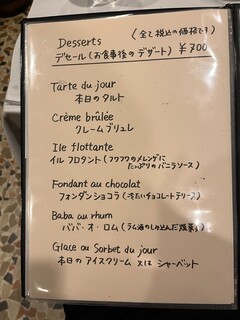 Desserts (全て税込の価格です)
デセール(お食事後のデザート) ¥700
Tarte du jour
本日のタルト
Crème brûlée
クレームブリュレ
Ile flottante
イル フロタント(フワフワのメレンゲに
たっぷりのバニラソース)
Fondant au chocolat
フォンダンショコラ(冷たいチョコレートテリーヌ)
Baba au rhum
ババ・オ・ロム(ラム酒のしみ込んだ焼菓子)
Glace ou Sorbet du jour
本日のアイスクリーム 又は シャーベット